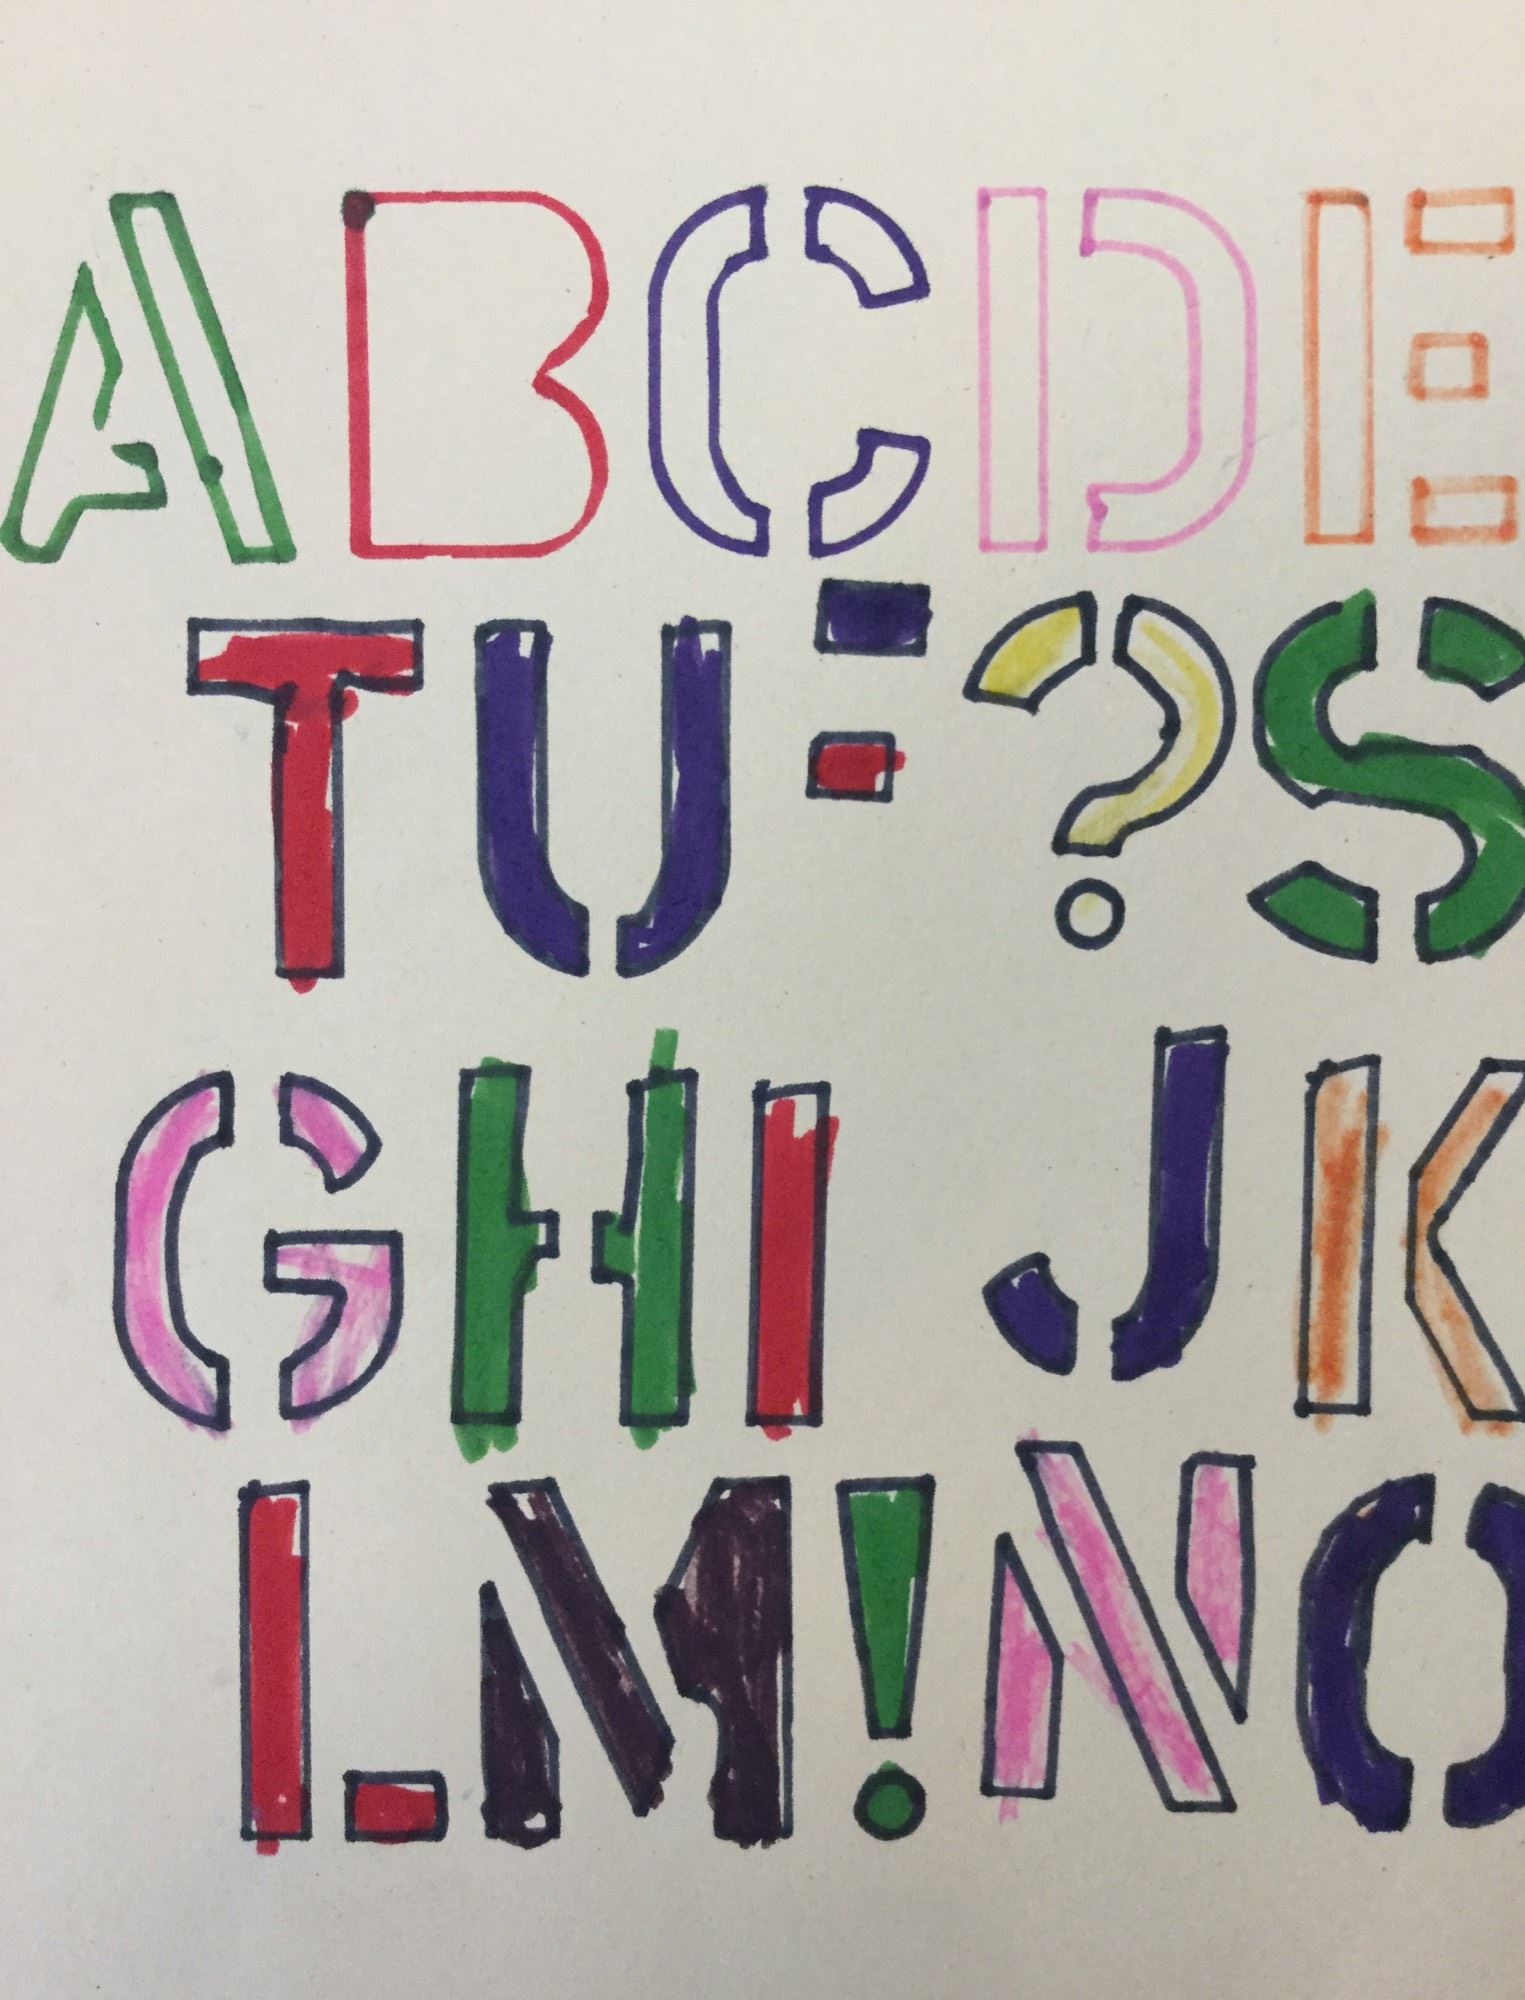 ABCDE
TU ?S
GHI JK
LM!NO